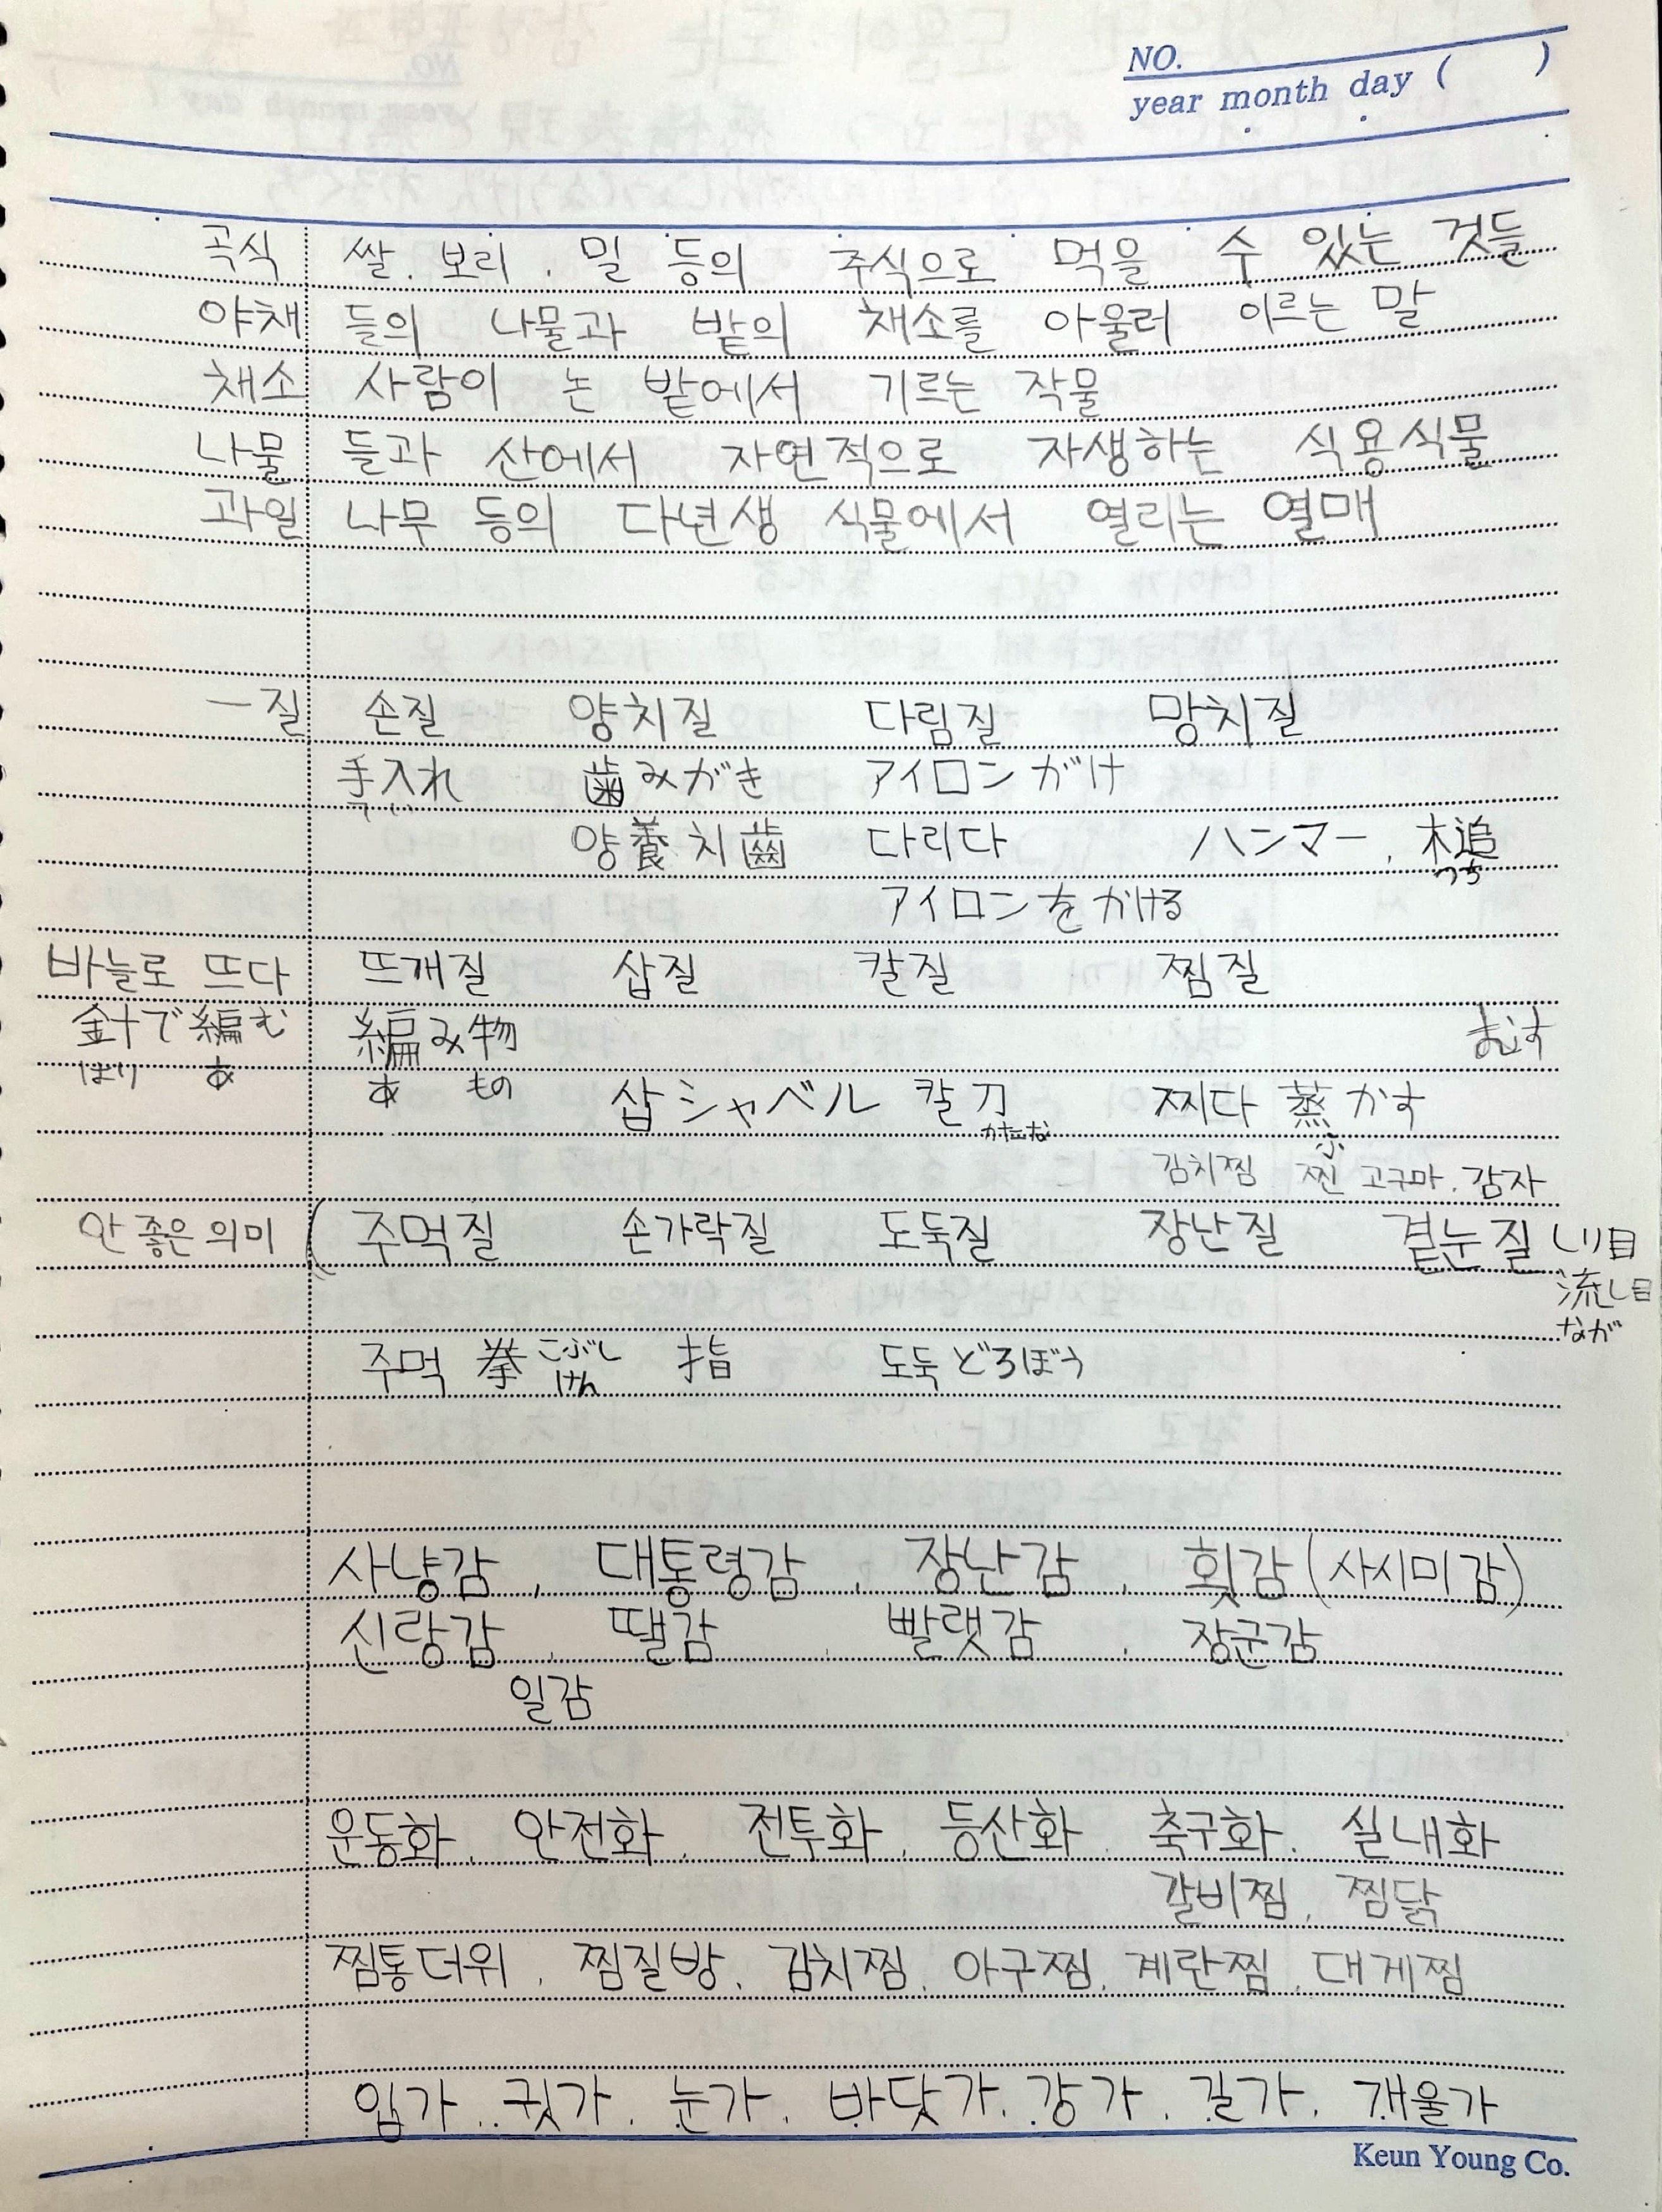 NO.
year month day ( )
곡식 쌀. 보리. 밀 등의 주식으로 먹을 수 있는 것들
야채 들의 나물과 밭의 채소를 아울러 이르는 말
채소 사람이 논 밭에서 기르는 작물
나물 들과 산에서 자연적으로 자생하는 식용식물
과일 나무 등의 다년생 식물에서 열리는 열매
一질 손질 양치질 다림질 망치질
手入れ 歯みがき アイロンがけ
양養치齒 다리다 ハンマー, 木槌
つち
アイロンをかける
바늘로 뜨다 뜨개질 삽질 칼질 찜질
針で編む 編み物 むす
はり あ あ もの 삽シャベル 칼刀 찌다 蒸かす
かたな ふ
김치찜 찐 고구마. 감자
안 좋은 의미 ( 주먹질 손가락질 도둑질 장난질 곁눈질 しり目
流し目
なが
주먹 拳 こぶし 指 도둑 どろぼう
けん
사냥감, 대통령감, 장난감, 횟감(사시미감)
신랑감, 땔감, 빨랫감, 장군감
일감
운동화, 안전화, 전투화, 등산화, 축구화, 실내화
갈비찜, 찜닭
찜통더위, 찜질방, 김치찜, 아구찜, 계란찜, 대게찜
입가, 귓가, 눈가, 바닷가, 강가, 길가, 개울가
Keun Young Co.